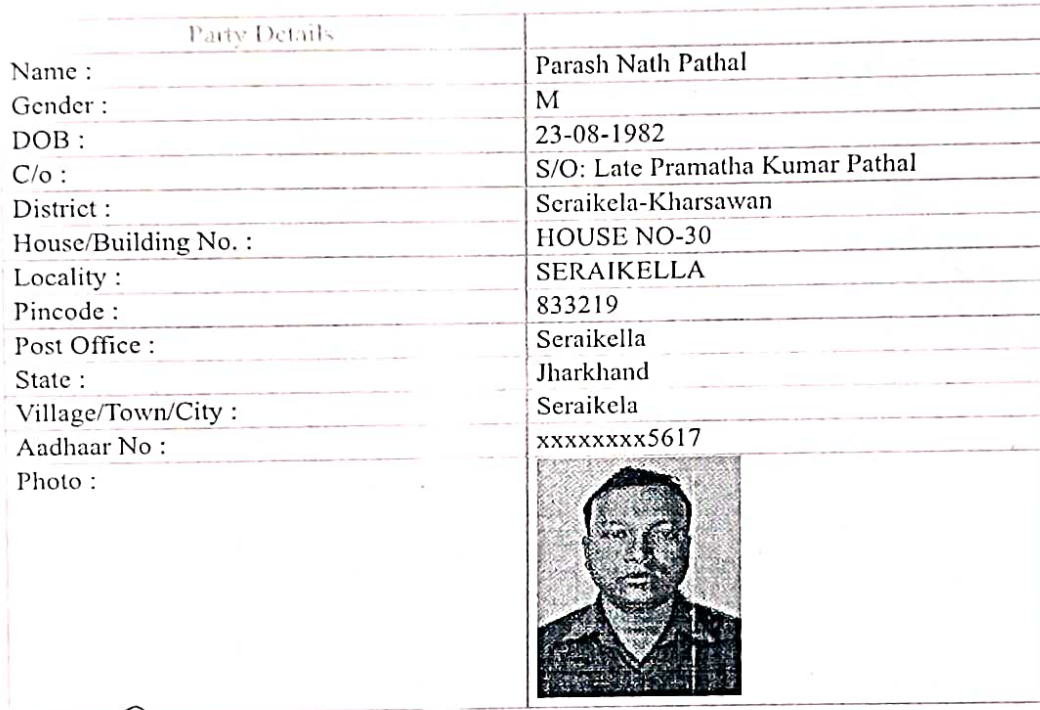 Party Details
Name : Parash Nath Pathal
Gender : M
DOB : 23-08-1982
C/o : S/O: Late Pramatha Kumar Pathal
District : Seraikela-Kharsawan
House/Building No. : HOUSE NO-30
Locality : SERAIKELLA
Pincode : 833219
Post Office : Seraikella
State : Jharkhand
Village/Town/City : Seraikela
Aadhaar No : xxxxxxxx5617
Photo :